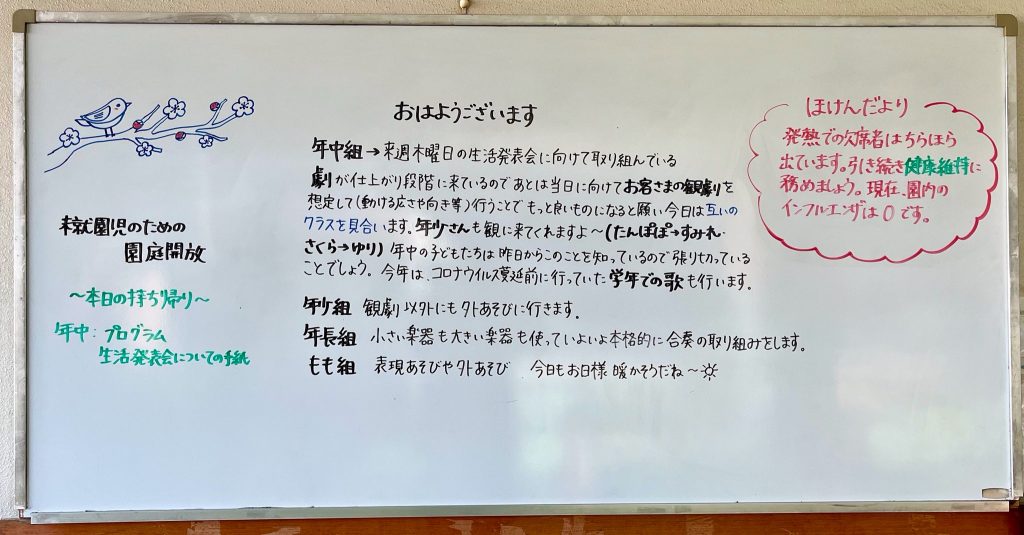 おはようございます
年中組→来週木曜日の生活発表会に向けて取り組んでいる
劇が仕上がり段階に来ているのであとは当日に向けてお客さまの観劇を
想定して(動ける広さや向き等)行うことでもっと良いものになると願い今日は互いの
クラスを見合います。年少さんも観に来てくれますよ～(たんぽぽ→すみれ・
さくら→ゆり) 年中の子どもたちは昨日からこのことを知っているので張り切っている
ことでしょう。今年は、コロナウイルス蔓延前に行っていた学年での歌も行います。
年少組 観劇以外にも外あそびに行きます。
年長組 小さい楽器も大きい楽器も使っていよいよ本格的に合奏の取り組みをします。
もも組 表現あそびや外あそび 今日もお日様暖かそうだね～
未就園児のための
園庭開放
～本日の持ち帰り～
年中：プログラム
生活発表会についての手紙
ほけんだより
発熱での欠席者はちらほら
出ています。引き続き健康維持に
務めましょう。現在、園内の
インフルエンザは0です。